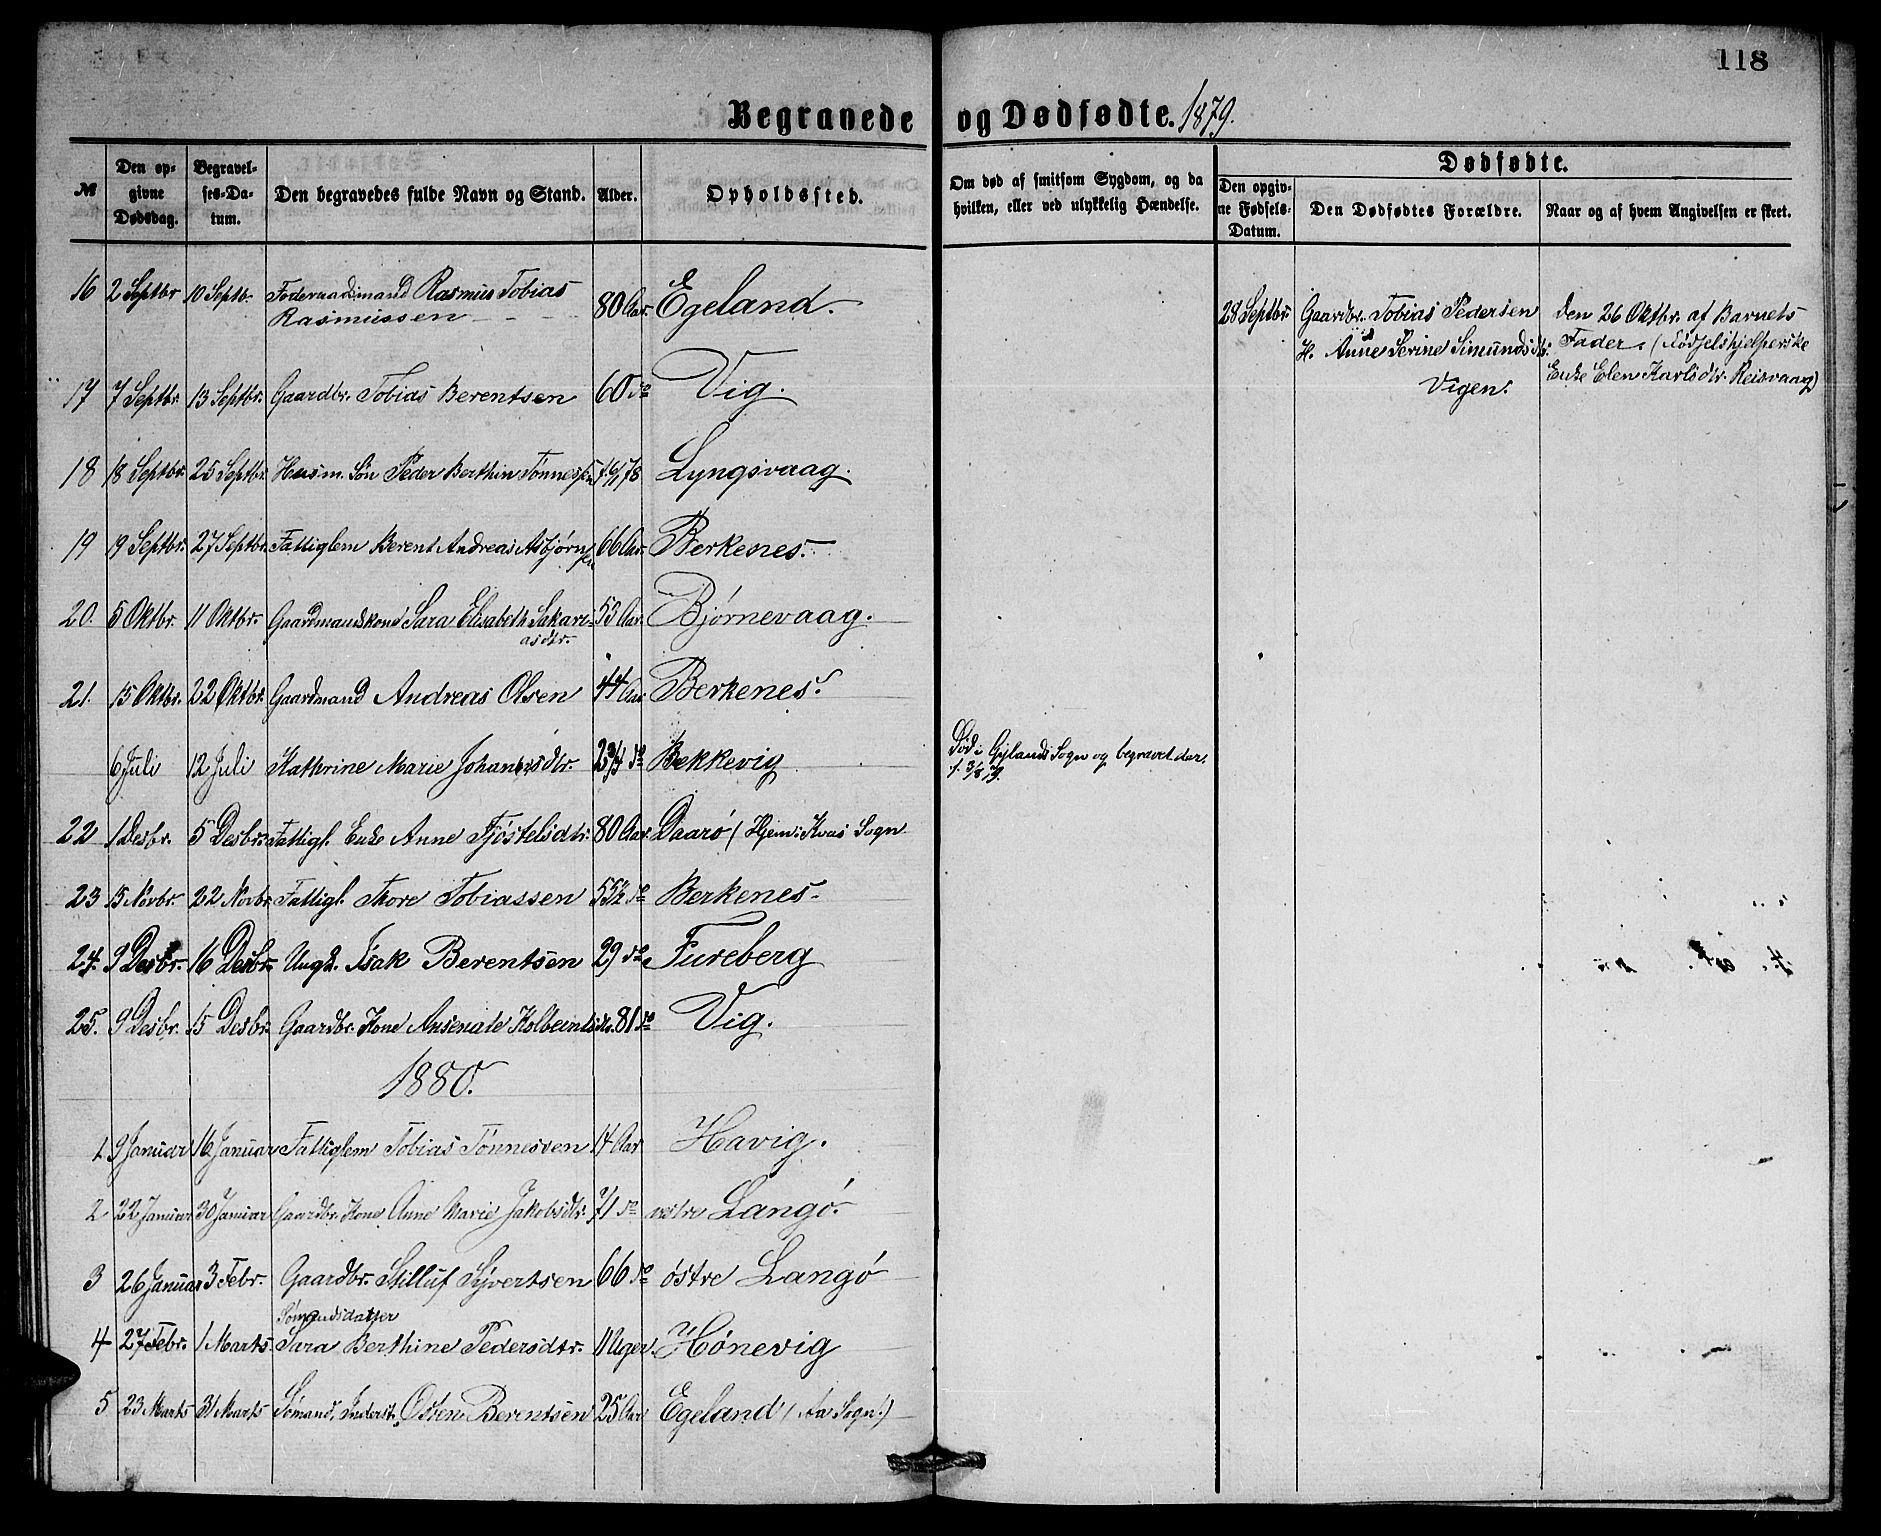 118
Begravede og Dødfødte. 1879.
№
Den opgivne Dødsdag.
Begravelses-Datum.
Den begravedes fulde Navn og Stand.
Alder.
Opholdssted.
Om død af smitsom Sygdom, og da hvilken, eller ved ulykkelig Hændelse.
Dødfødte.
Den opgivne Fødsels-Datum.
Den Dødfødtes Forældre.
Naar og af hvem Angivelsen er skeet.
16 2 Septbr 10 Septb. Føderaadsmand Rasmus Tobias 80 Aar. Egeland.
Rasmussen
28 Septbr. Gaardbr. Tobias Pedersen
H. Anne Serine Simundsdtr.
Vigen.
den 26 Oktbr. af Barnets
Fader. (Fødselshjelperske
Enke Elen Karlsdtr. Reisvaag)
17 7 Septbr 13 Septbr. Gaardbr. Tobias Berentsen 60 do Vig.
18 18 Septbr. 25 Septbr. Husm. Søn Peder Berthin Tønnessen Lyngsvaag.
19 19 Septbr. 27 Septbr. Fattiglem Berent Andreas Asbjørnsen 66 Aar. Berkenes.
20. 5 Oktbr. 11 Oktbr. Gaardmandskone Sara Elisabeth Sakari- 53 Aar. Bjørnevaag.
asdtr.
21. 15 Oktbr. 22 Oktbr. Gaardmand Andreas Olsen 44 Aar Berkenes.
6 Juli 12 Juli Kathrine Marie Johannsdtr. 23¾ do Bekkevig
Død i Gylands Sogn og begravet der.
22 1 Desbr. 5 Desbr. Fattigl. Enke Anne Fjøstelsdtr. 80 Aar. Daarø (Hjem: Kvas Sogn
23 15 Novbr. 22 Novbr. Fattigl. Thore Tobiassen 55½ do Berkenes.
24. 9 Desbr. 16 Desbr. Ungk. Isak Berentsen 29 do Fureberg
25. 9 Desbr. 15 Desbr. Gaardbr. Kone Ansenate Kolbeinsdtr. 81 do Vig.
1880.
1. 9 Januar 16 Januar Fattiglem Tobias Tønnesven 14 Aar Havig.
2 22 Januar 30 Januar Gaardbr. Kone Anne Marie Jakobsdtr. 71 do vestre Langø.
3 26 Januar 3 Febr. Gaardbr. Stilluf Syvertsen 66 do østre Langø
Sømandsdatter
4 27 Febr. 1 Marts Sara Berthine Pedersdtr. 11 Uger. Hønevig
5 23 Marts 31 Marts Sømand, Inderst, Osten Berentsen 25 Aar Egeland (Aa Sogn.)